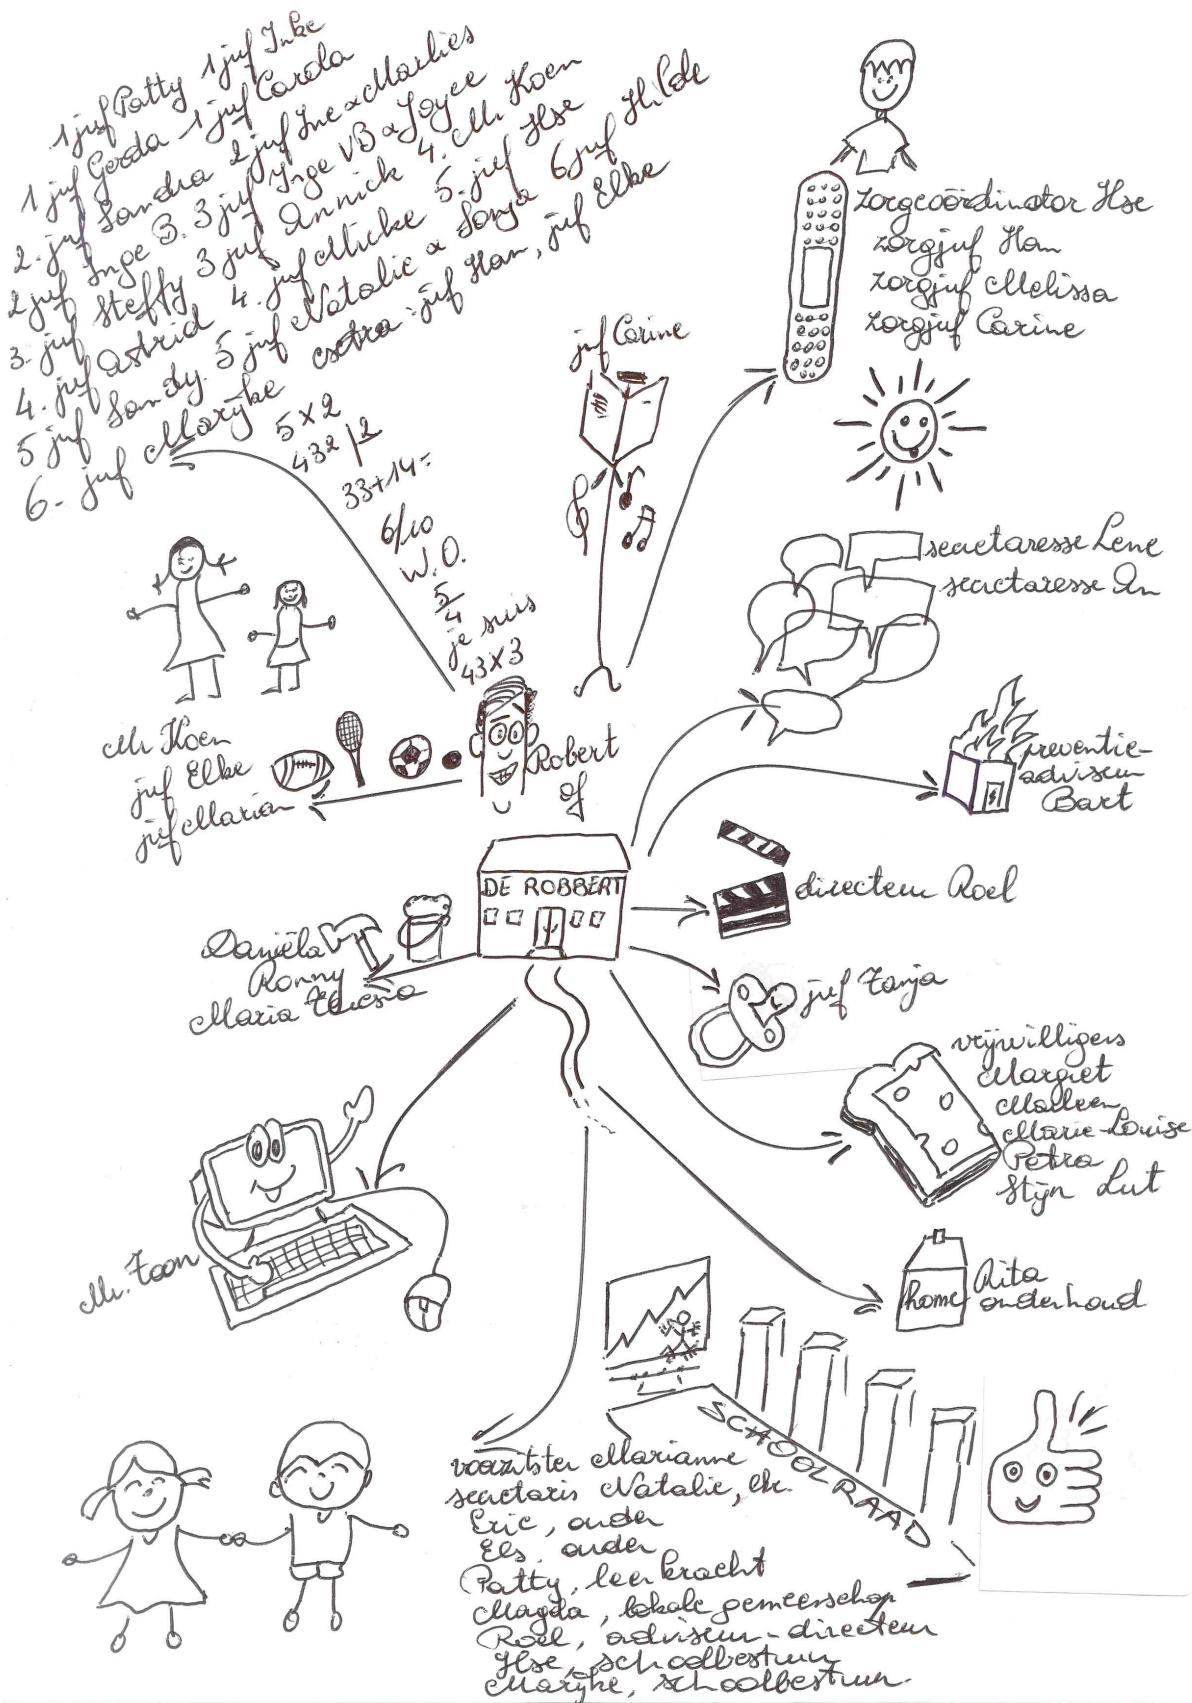 1 juf Patty 1 juf Inke
1 juf Gerda 1 juf Carola
2. juf Sandra 2 juf Ine & Marlies
2 juf Inge B. 3 juf Inge VB & Joyce
3. juf Steffy 3 juf Annick 4. Mr. Koen
4. juf Astrid 4. juf Micke 5. juf Ilse
5 juf Sandy. 5 juf Natalie & Sonja 6 juf Hilde
6. juf Marijke exstra: juf Han, juf Elke
5 x 2
432 | 2
33+14=
6/10
W.O.
5
4
je suis
43 x 3
juf Carine
zorgcoördinator Ilse
zorgjuf Han
zorgjuf Melissa
zorgjuf Carine
secretaresse Lene
secretaresse An
Mr Koen
juf Elke
juf Marian
Robert
of
DE ROBBERT
preventie-
adviseur
Bart
directeur Roel
Daniëla
Ronny
Maria Theresia
juf Tanja
vrijwilligers
Margriet
Marleen
Marie-Louise
Petra
Stijn Lut
Mr. Toon
home
Rita
onderhoud
SCHOOLRAAD
voorzitster Marianne
secretaris Natalie, lkr.
Eric, ouder
Els, ouder
Patty, leerkracht
Magda, lokale gemeenschap
Roel, adviseur-directeur
Ilse, schoolbestuur
Marijke, schoolbestuur.